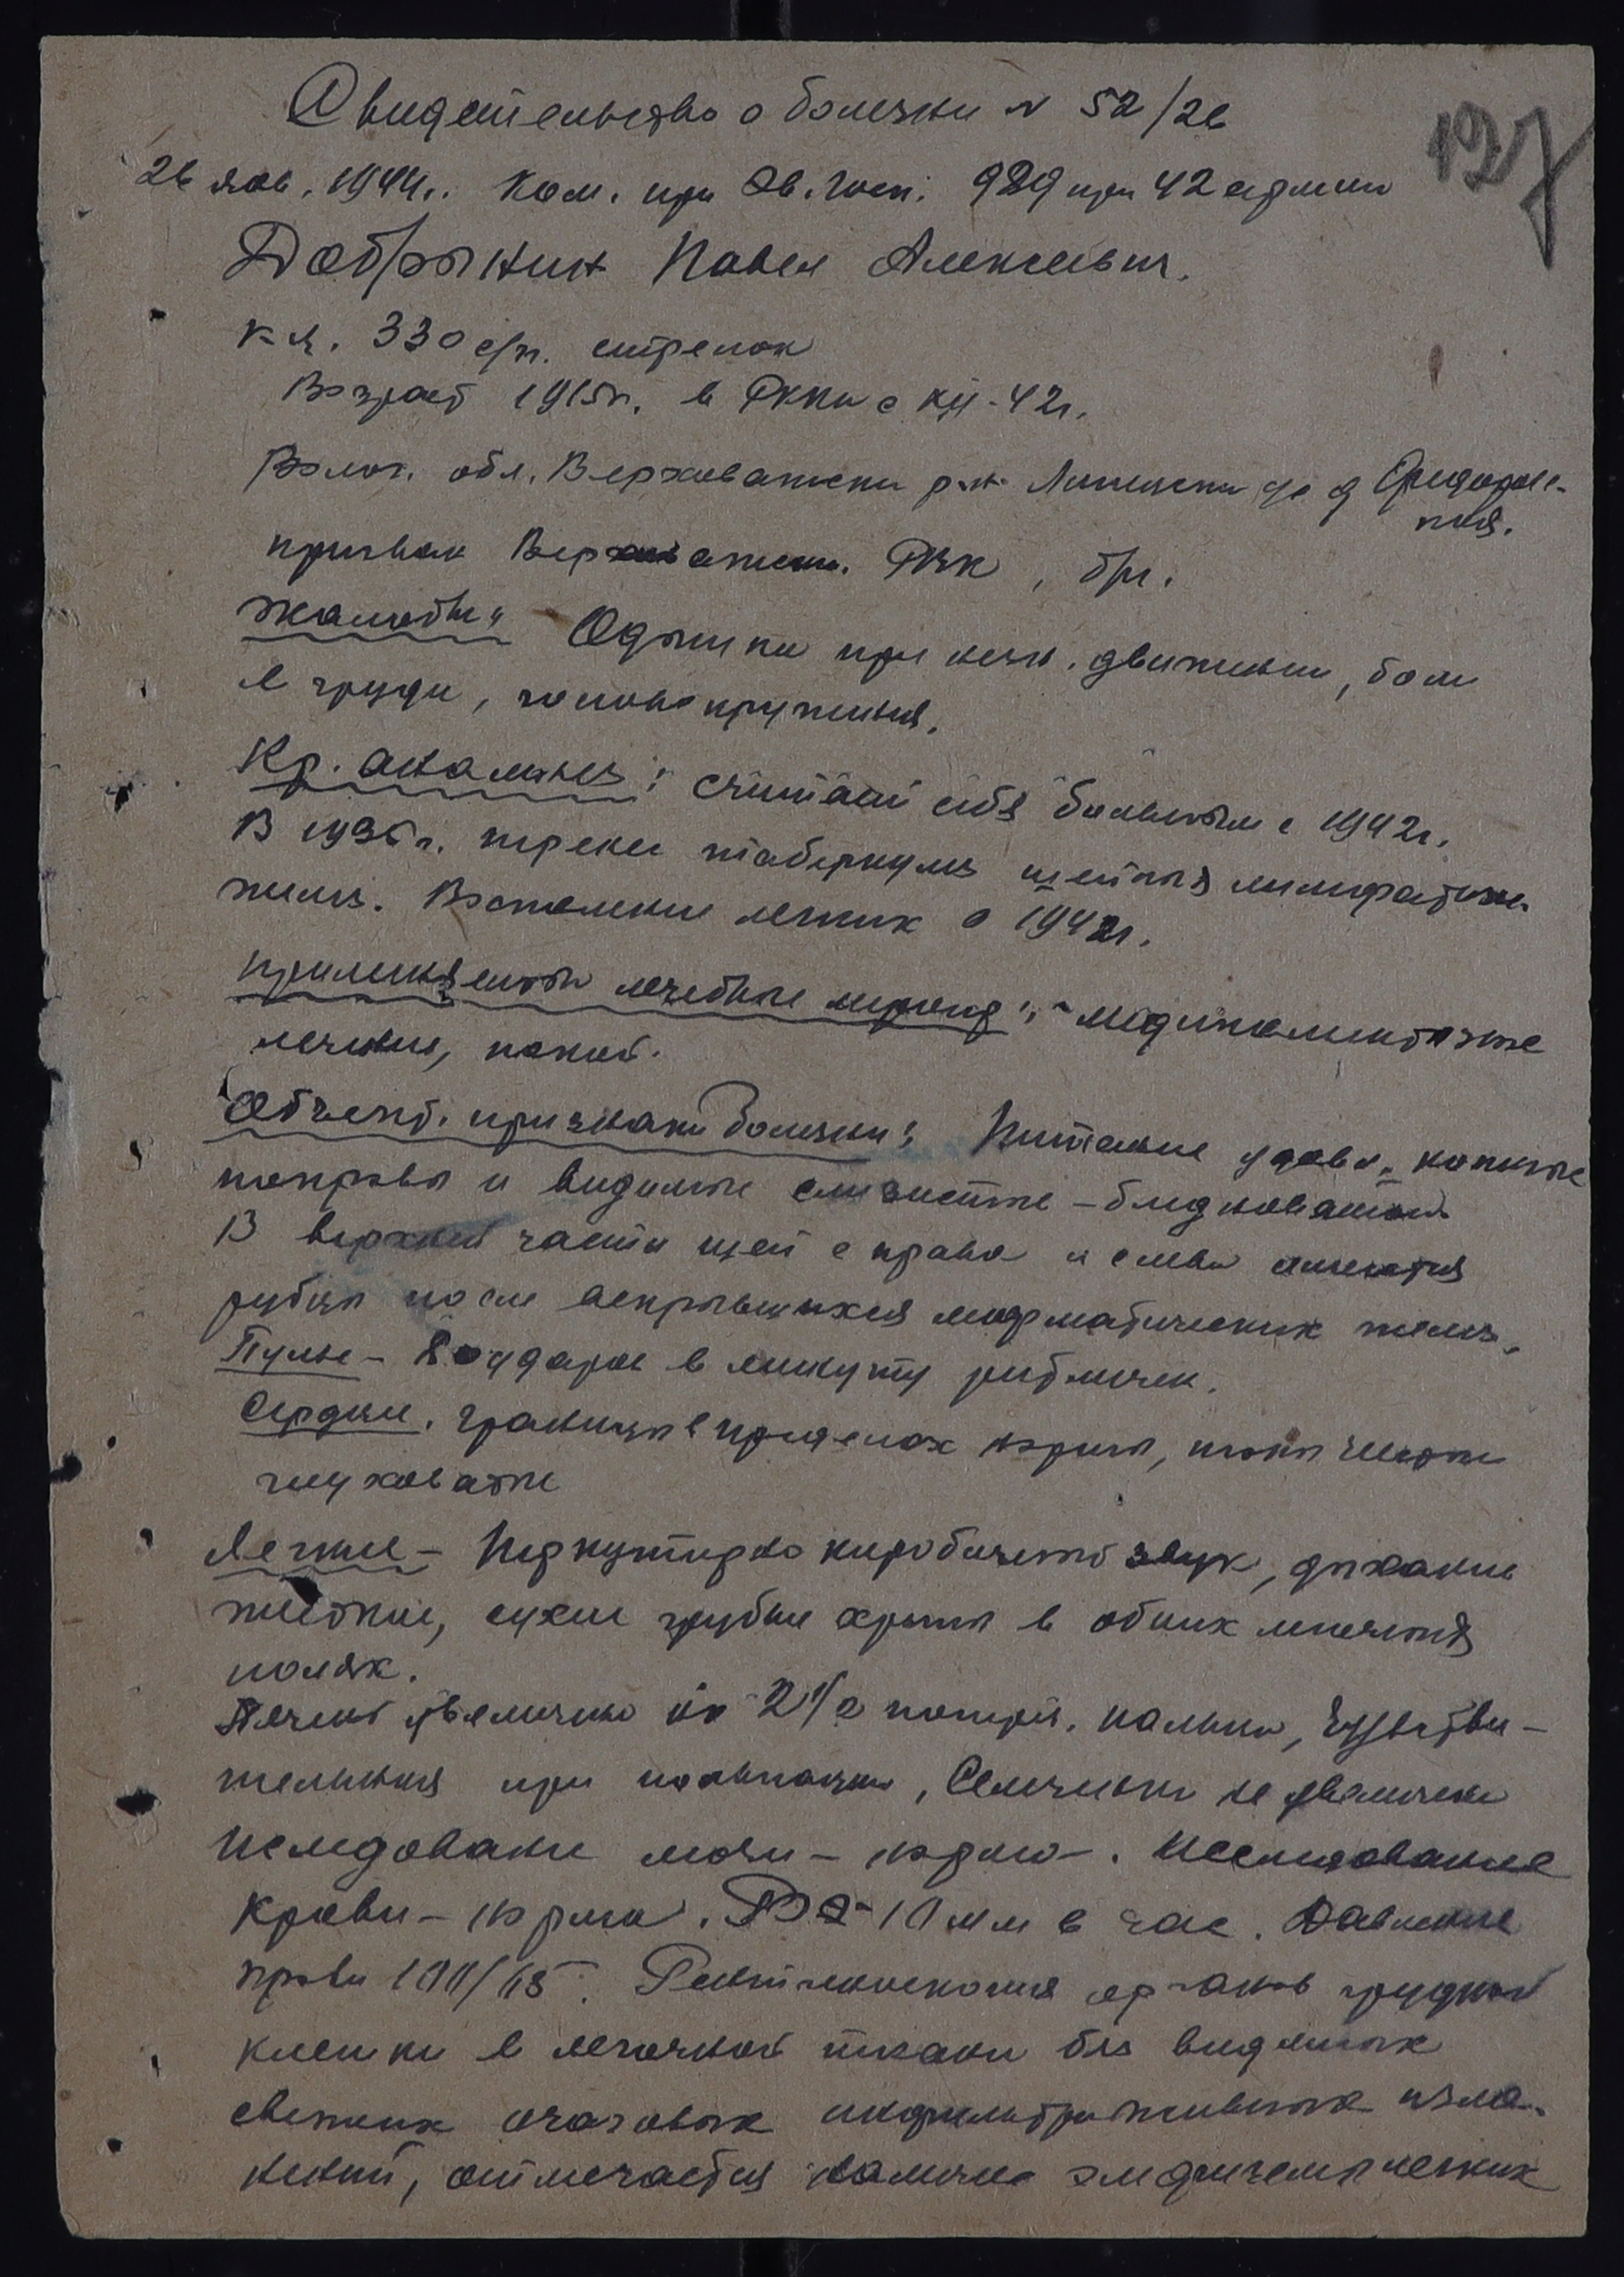 Свидетельство о болезни N 52/26
127
26 янв. 1944г. Ком. при Эв. Госп. 989 при 42 армии
Добрынин Павел Алексеевич.
к-ц. 330 с/п. стрелок
Возраст 1915г. в РККА с XII-42г.
Волог. обл. Верховажски р-н. Липецкий с/с д Сфедоров-
ская.
призван Верховажским. РВК, б/п.
Жалобы: Одышка при незн. движении, боли
в груди, головокружения.
Кр. анамнез: считает себя больным с 1942г.
В 1936г. перенес туберкулез шейных лимфатич.
желез. Воспаление легких в 1942г.
применяемые лечебные меропр: медикаментозное
лечение, покой.
Объект. признаки болезни: Питание удовл., кожные
покровы и видимые слизистые - бледноватые
В верхней части шеи с права и слева имеются
рубцы после вскрывшихся лимфатических желез.
Пульс - 80 ударов в минуту ритмичен.
Сердце. границы в пределах нормы, тоны чистые
глуховаты
Легкие - Перкуторно коробочный звук, дыхание
жесткое, сухие грубые хрипы в обоих легочных
полях.
Печень увеличена на 2 1/2 попереч. пальца, чувстви-
тельная при пальпации, Селезенка не увеличена
Иследование мочи - норма-. Исследование
Крови - норма. РОЭ - 10 мм в час. Давление
крови 100/65. Рентгеноскопия органов грудной
клетки в легочной ткани без видимых
свежих очаговых инфильтративных изме-
нений, отмечается наличие эмфиземы легких